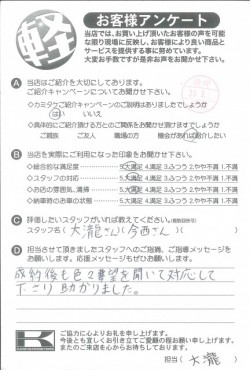 軽
お客様アンケート
当店では、お買い上げ頂いたお客様の声を可能
な限り現場に反映し、お客様により良い商品と
サービスを提供する事に努めています。
大変お手数ですが是非お声をお聞かせ下さい。
A 当店はご紹介を大切にしております。
ご紹介キャンペーンについてお聞かせ下さい。
◇カミタケご紹介キャンペーンのご説明はありましたでしょうか
はい いいえ
◇具体的にご紹介頂ける方とのご関係をお聞かせ頂けますでしょうか
ご親族 ご友人 職場の方 機会があれば紹介したい
B 当店を実際にご利用になった印象をお聞かせ下さい。
◇総合的な満足度 5.大満足 4.満足 3.ふつう 2.やや不満 1.不満
◇スタッフの対応 5.大満足 4.満足 3.ふつう 2.やや不満 1.不満
◇お店の雰囲気、清掃 5.大満足 4.満足 3.ふつう 2.やや不満 1.不満
◇納車時のお車の状態 5.大満足 4.満足 3.ふつう 2.やや不満 1.不満
C 評価したいスタッフがいれば教えてください。(複数回答可)
スタッフ名(大瀧さん)(今西さん)( )
D 担当させて頂きましたスタッフへのご指摘、ご指導メッセージを
お願いします。応援メッセージもお聞かせ下さい。
成約後も色々要望を聞いて対応して
下さり助かりました。
K
ご協力に心よりお礼を申し上げます。
今後とも宜しくお引き立てご愛顧の程お願い申し上げます。
またのご来店を心からお待ちしております。
担当(大瀧)